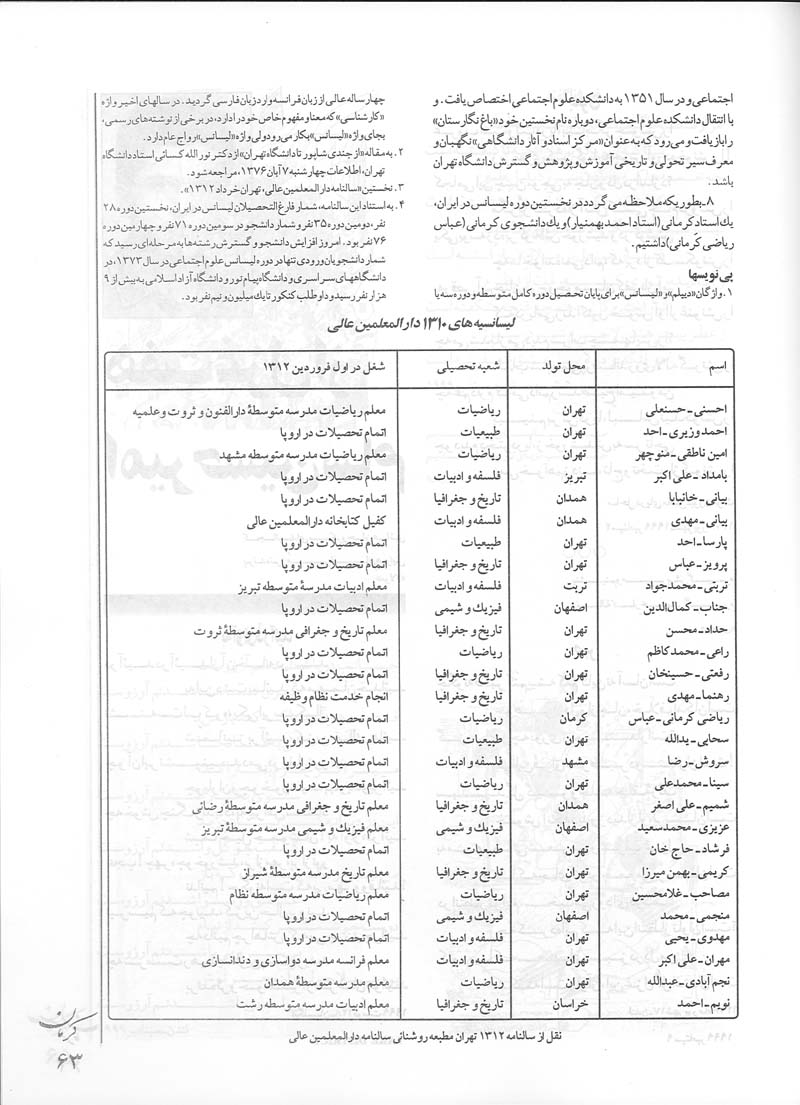 اجتماعی و در سال ۱۳۵۱ به دانشکده علوم اجتماعی اختصاص یافت. و
با انتقال دانشکده علوم اجتماعی، دوباره نام نخستین خود «باغ نگارستان»
را بازیافت و می‌رود که به عنوان «مرکز اسناد و آثار دانشگاهی» نگهبان و
معرف سیر تحولی و تاریخی آموزش و پژوهش و گسترش دانشگاه تهران
باشد.
۸ـ بطوریکه ملاحظه می‌گردد در نخستین دوره لیسانس در ایران،
یك استاد کرمانی (استاد احمد بهمنیار) و یك دانشجوی کرمانی (عباس
ریاضی کرمانی) داشتیم.
پی‌نویسها
۱. واژگان «دیپلم» و «لیسانس» برای پایان تحصیل دوره کامل متوسطه و دوره سه یا
چهار ساله عالی از زبان فرانسه وارد زبان فارسی گردید. در سالهای اخیر واژه
«کارشناسی» که معنا و مفهوم خاص خود را دارد، در برخی از نوشته‌های رسمی،
بجای واژه «لیسانس» بکار می‌رود ولی واژه «لیسانس» رواج عام دارد.
۲. به مقاله «از جندی شاپور تا دانشگاه تهران» از دکتر نورالله کسائی استاد دانشگاه
تهران، اطلاعات چهارشنبه ۷ آبان ۱۳۷۶، مراجعه شود.
۳. نخستین «سالنامه دارالمعلمین عالی، تهران خرداد ۱۳۱۲».
۴. به استناد این سالنامه، شمار فارغ التحصیلان لیسانس در ایران، نخستین دوره ۲۸
نفر، دومین دوره ۳۵ نفر و شمار دانشجو در سومین دوره ۷۱ نفر و چهارمین دوره
۷۶ نفر بود. امروز افزایش دانشجو و گسترش رشته‌ها به مرحله‌ای رسید که
شمار دانشجویان ورودی تنها در دوره لیسانس علوم اجتماعی در سال ۱۳۷۳، در
دانشگاههای سراسری و دانشگاه پیام نور و دانشگاه آزاد اسلامی به بیش از ۹
هزار نفر رسید و داوطلب کنکور تا یك میلیون و نیم نفر بود.
لیسانسیه‌های ۱۳۱۰ دارالمعلمین عالی
اسم محل تولد شعبه تحصیلی شغل در اول فروردین ۱۳۱۲
احسنی ـ حسنعلی تهران ریاضیات معلم ریاضیات مدرسه متوسطهٔ دارالفنون و ثروت و علمیه
احمد وزیری ـ احد تهران طبیعیات اتمام تحصیلات در اروپا
امین ناطقی ـ منوچهر تهران ریاضیات معلم ریاضیات مدرسه متوسطه مشهد
بامداد ـ علی اکبر تبریز فلسفه و ادبیات اتمام تحصیلات در اروپا
بیانی ـ خانبابا همدان تاریخ و جغرافیا اتمام تحصیلات در اروپا
بیانی ـ مهدی همدان فلسفه و ادبیات کفیل کتابخانه دارالمعلمین عالی
پارسا ـ احد تهران طبیعیات اتمام تحصیلات در اروپا
پرویز ـ عباس تهران تاریخ و جغرافیا اتمام تحصیلات در اروپا
تربتی ـ محمدجواد تربت فلسفه و ادبیات معلم ادبیات مدرسهٔ متوسطه تبریز
جناب ـ کمال‌الدین اصفهان فیزیك و شیمی اتمام تحصیلات در اروپا
حداد ـ محسن تهران تاریخ و جغرافیا معلم تاریخ و جغرافی مدرسه متوسطهٔ ثروت
راعی ـ محمدکاظم تهران ریاضیات اتمام تحصیلات در اروپا
رفعتی ـ حسینخان تهران تاریخ و جغرافیا اتمام تحصیلات در اروپا
رهنما ـ مهدی تهران تاریخ و جغرافیا انجام خدمت نظام وظیفه
ریاضی کرمانی ـ عباس کرمان ریاضیات اتمام تحصیلات در اروپا
سحابی ـ یدالله تهران طبیعیات اتمام تحصیلات در اروپا
سروش ـ رضا مشهد فلسفه و ادبیات اتمام تحصیلات در اروپا
سینا ـ محمدعلی تهران ریاضیات اتمام تحصیلات در اروپا
شمیم ـ علی اصغر همدان تاریخ و جغرافیا معلم تاریخ و جغرافی مدرسه متوسطهٔ رضائی
عزیزی ـ محمدسعید اصفهان فیزیك و شیمی معلم فیزیك و شیمی مدرسه متوسطهٔ تبریز
فرشاد ـ حاج خان تهران طبیعیات اتمام تحصیلات در اروپا
کریمی ـ بهمن میرزا تهران تاریخ و جغرافیا معلم تاریخ مدرسه متوسطهٔ شیراز
مصاحب ـ غلامحسین تهران ریاضیات معلم ریاضیات مدرسه متوسطه نظام
منجمی ـ محمد اصفهان فیزیك و شیمی اتمام تحصیلات در اروپا
مهدوی ـ یحیی تهران فلسفه و ادبیات اتمام تحصیلات در اروپا
مهران ـ علی اکبر تهران فلسفه و ادبیات معلم فرانسه مدرسه دواسازی و دندانسازی
نجم آبادی ـ عبدالله تهران ریاضیات معلم مدرسه متوسطهٔ همدان
نویم ـ احمد خراسان تاریخ و جغرافیا معلم ادبیات مدرسه متوسطه رشت
نقل از سالنامه ۱۳۱۲ تهران مطبعه روشنائی سالنامه دارالمعلمین عالی
کرمان
۶۳